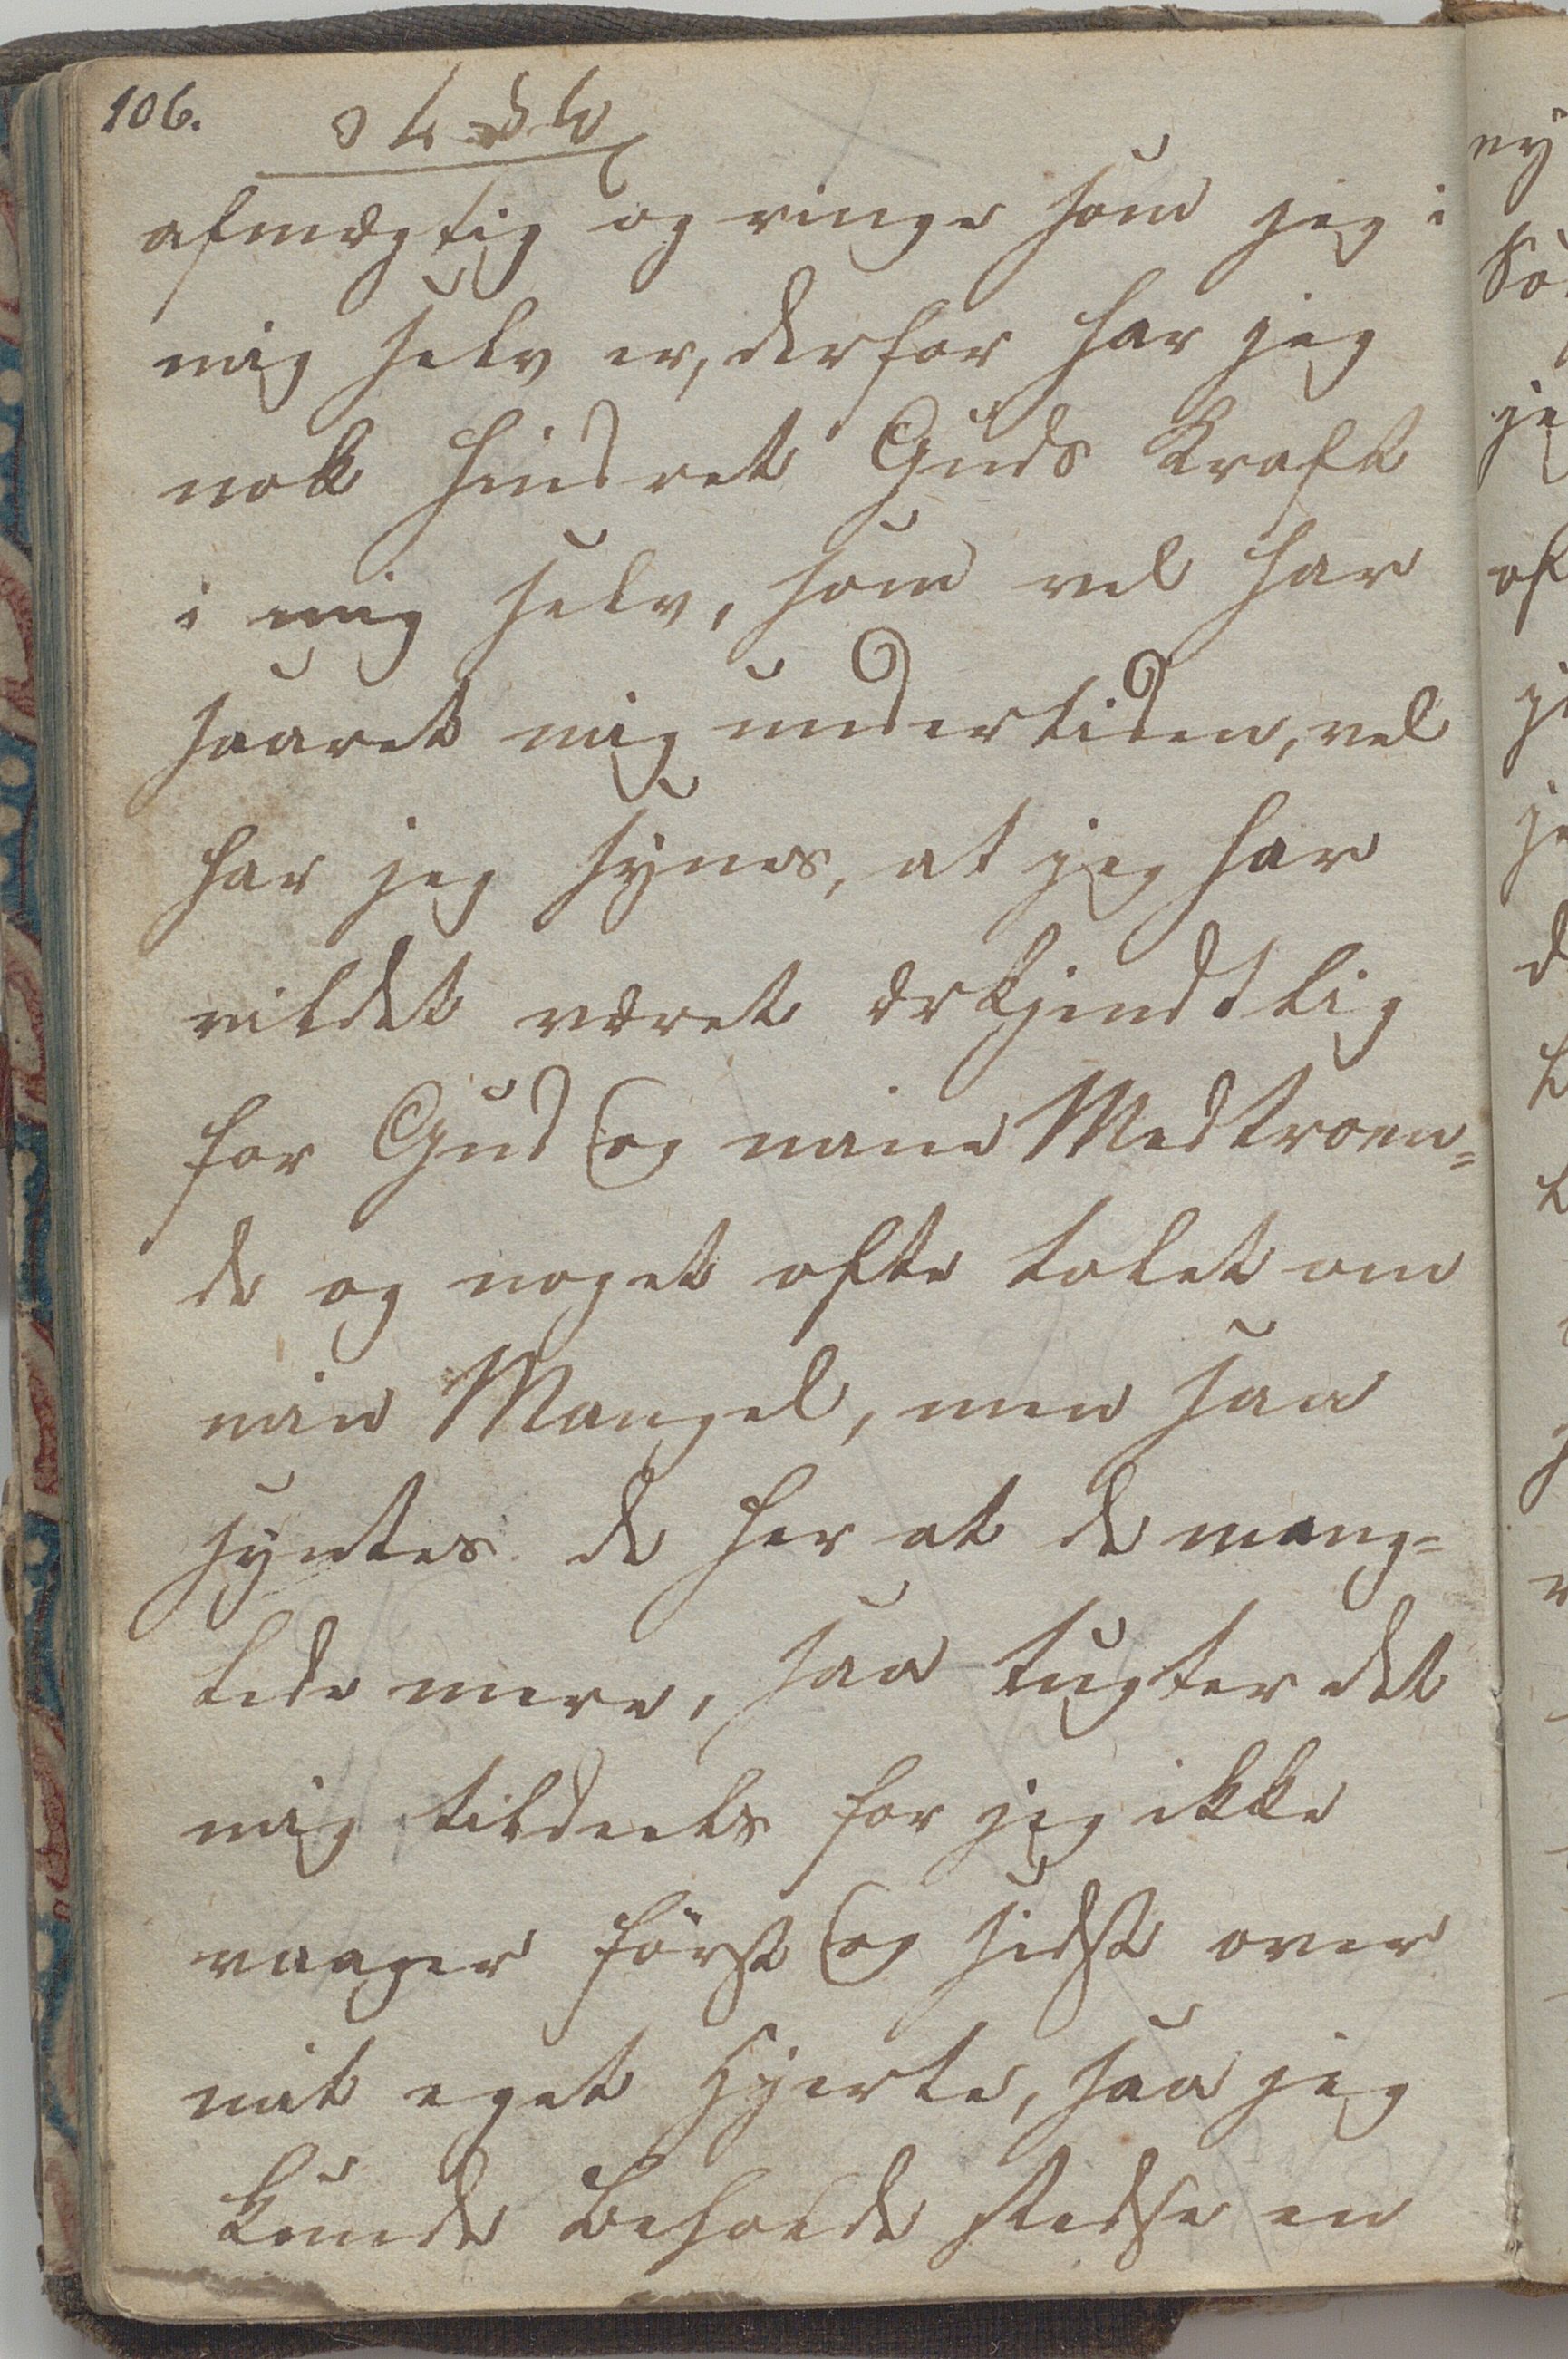 106.
afmægtig og ringe som jeg i
mig selv er, derfor har jeg
nok hindret Guds Kraft
i mig selv, som vel har
saaret mig undertiden, vel
har jeg synes, at jeg har
vildet været erkjendtlig
for Gud og mine Medtroen=
de og noget ofte talet om
min Mangel, men saa
syntes de her at de mang=
lede mere, saa tugter det
mig tildeels for jeg ikke
vaager først og sidst over
mit eget Hjerte, saa jeg
kunde beholde stedse en